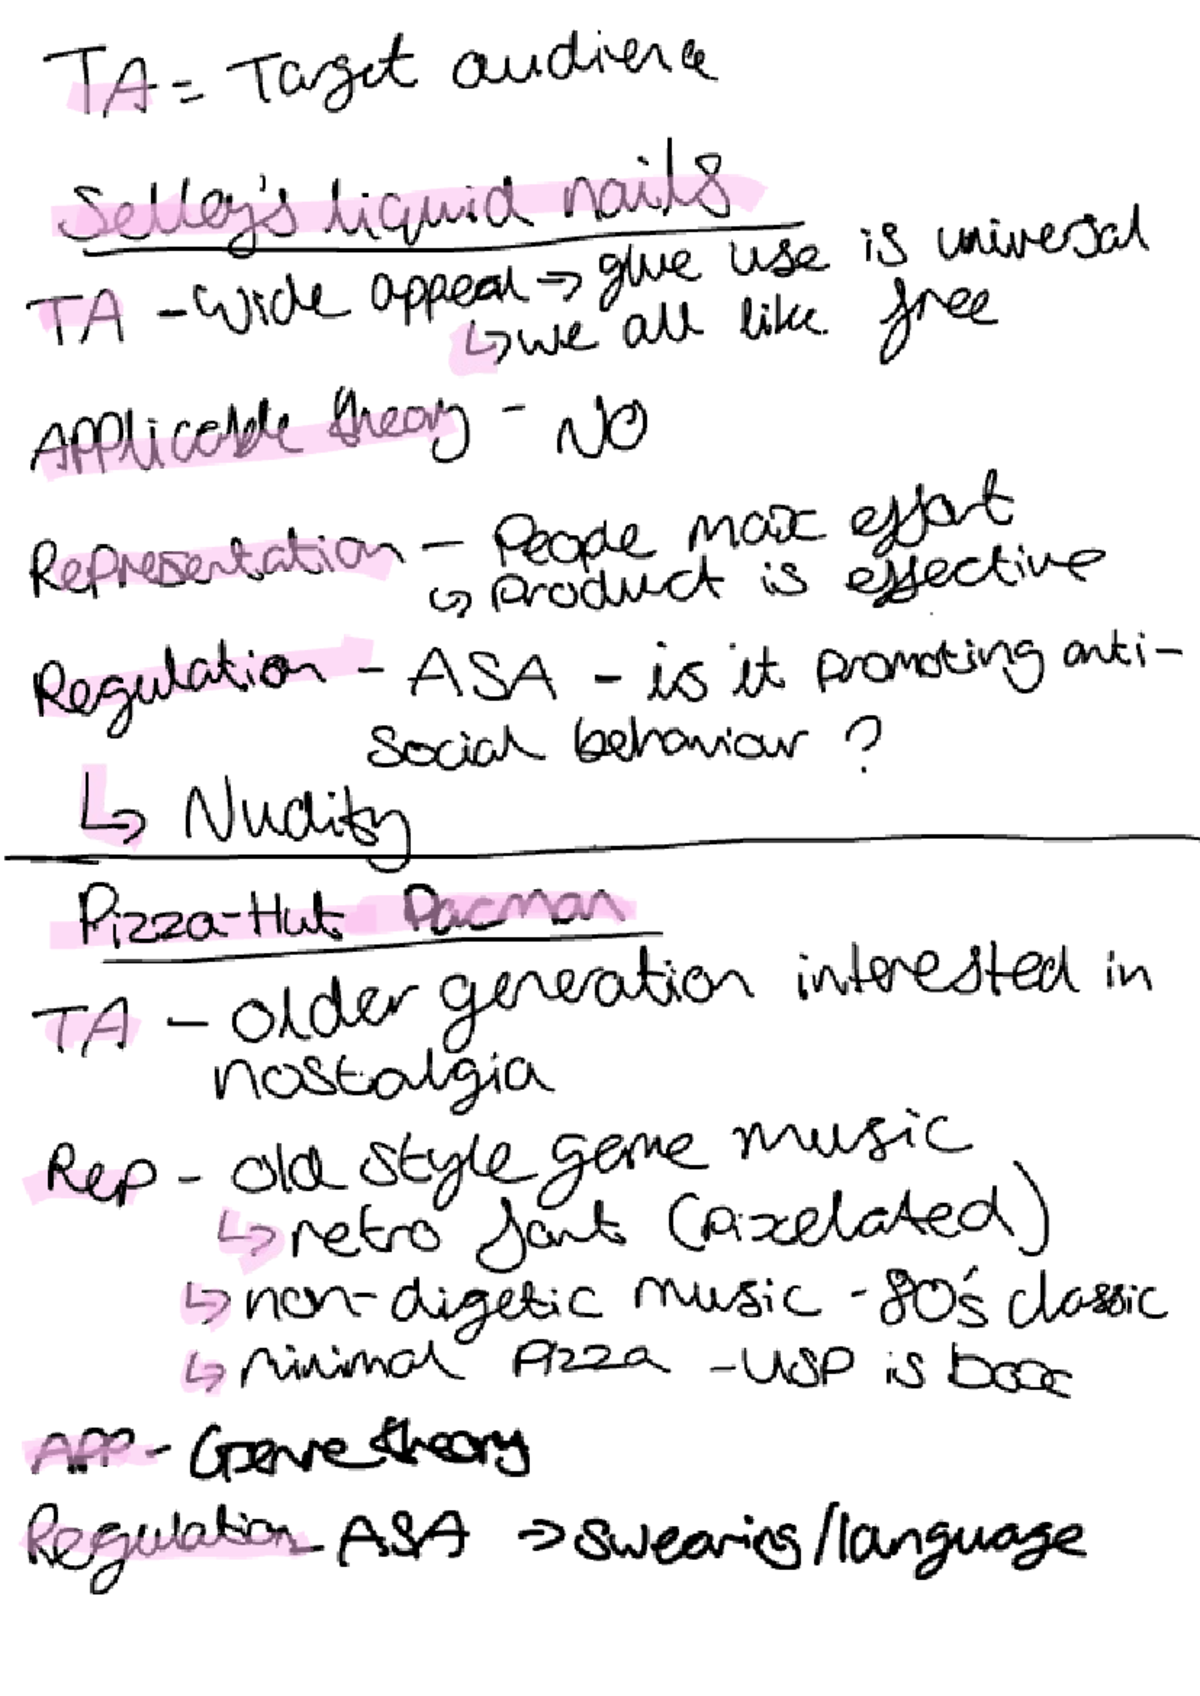 TA = Target audience
Selley's liquid nails
TA - Wide appeal → glue use is universal
↳ we all like free
Applicable theory - NO
Representation - People max effort
↳ Product is effective
Regulation - ASA - is it promoting anti-
social behaviour ?
↳ Nudity
Pizza-Hut Pacman
TA - older generation interested in
nostalgia
Rep - old style game music
↳ retro font (pixelated)
↳ non-digetic music - 80's classic
↳ minimal Pizza - USP is box
APP - Genre theory
Regulation - ASA → swearing/language